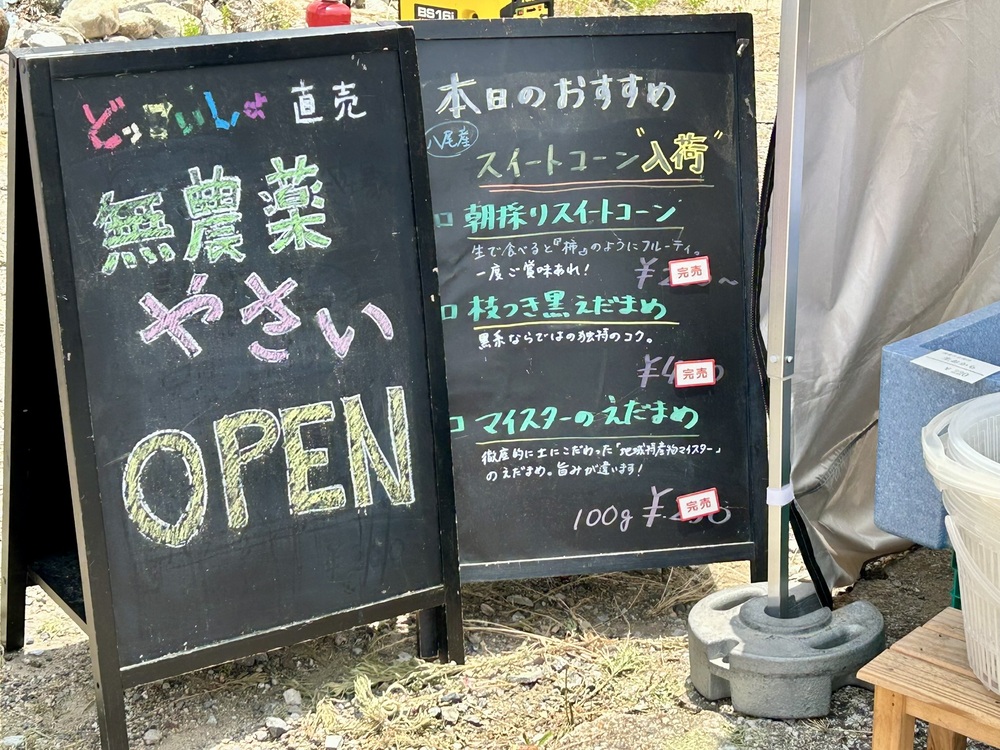 BS16i
どっこいしょ 直売
無農薬
やさい
OPEN
本日のおすすめ
八尾産
スイートコーン"入荷"
朝採りスイートコーン
生で食べると『柿』のようにフルーティ。
一度ご賞味あれ!
¥2 完売 ~
枝つき黒えだまめ
黒系ならではの独特のコク。
¥4 完売 0
マイスターのえだまめ
徹底的に土にこだわった「地域特産物マイスター」
のえだまめ。旨みが違います!
100g ¥ 完売